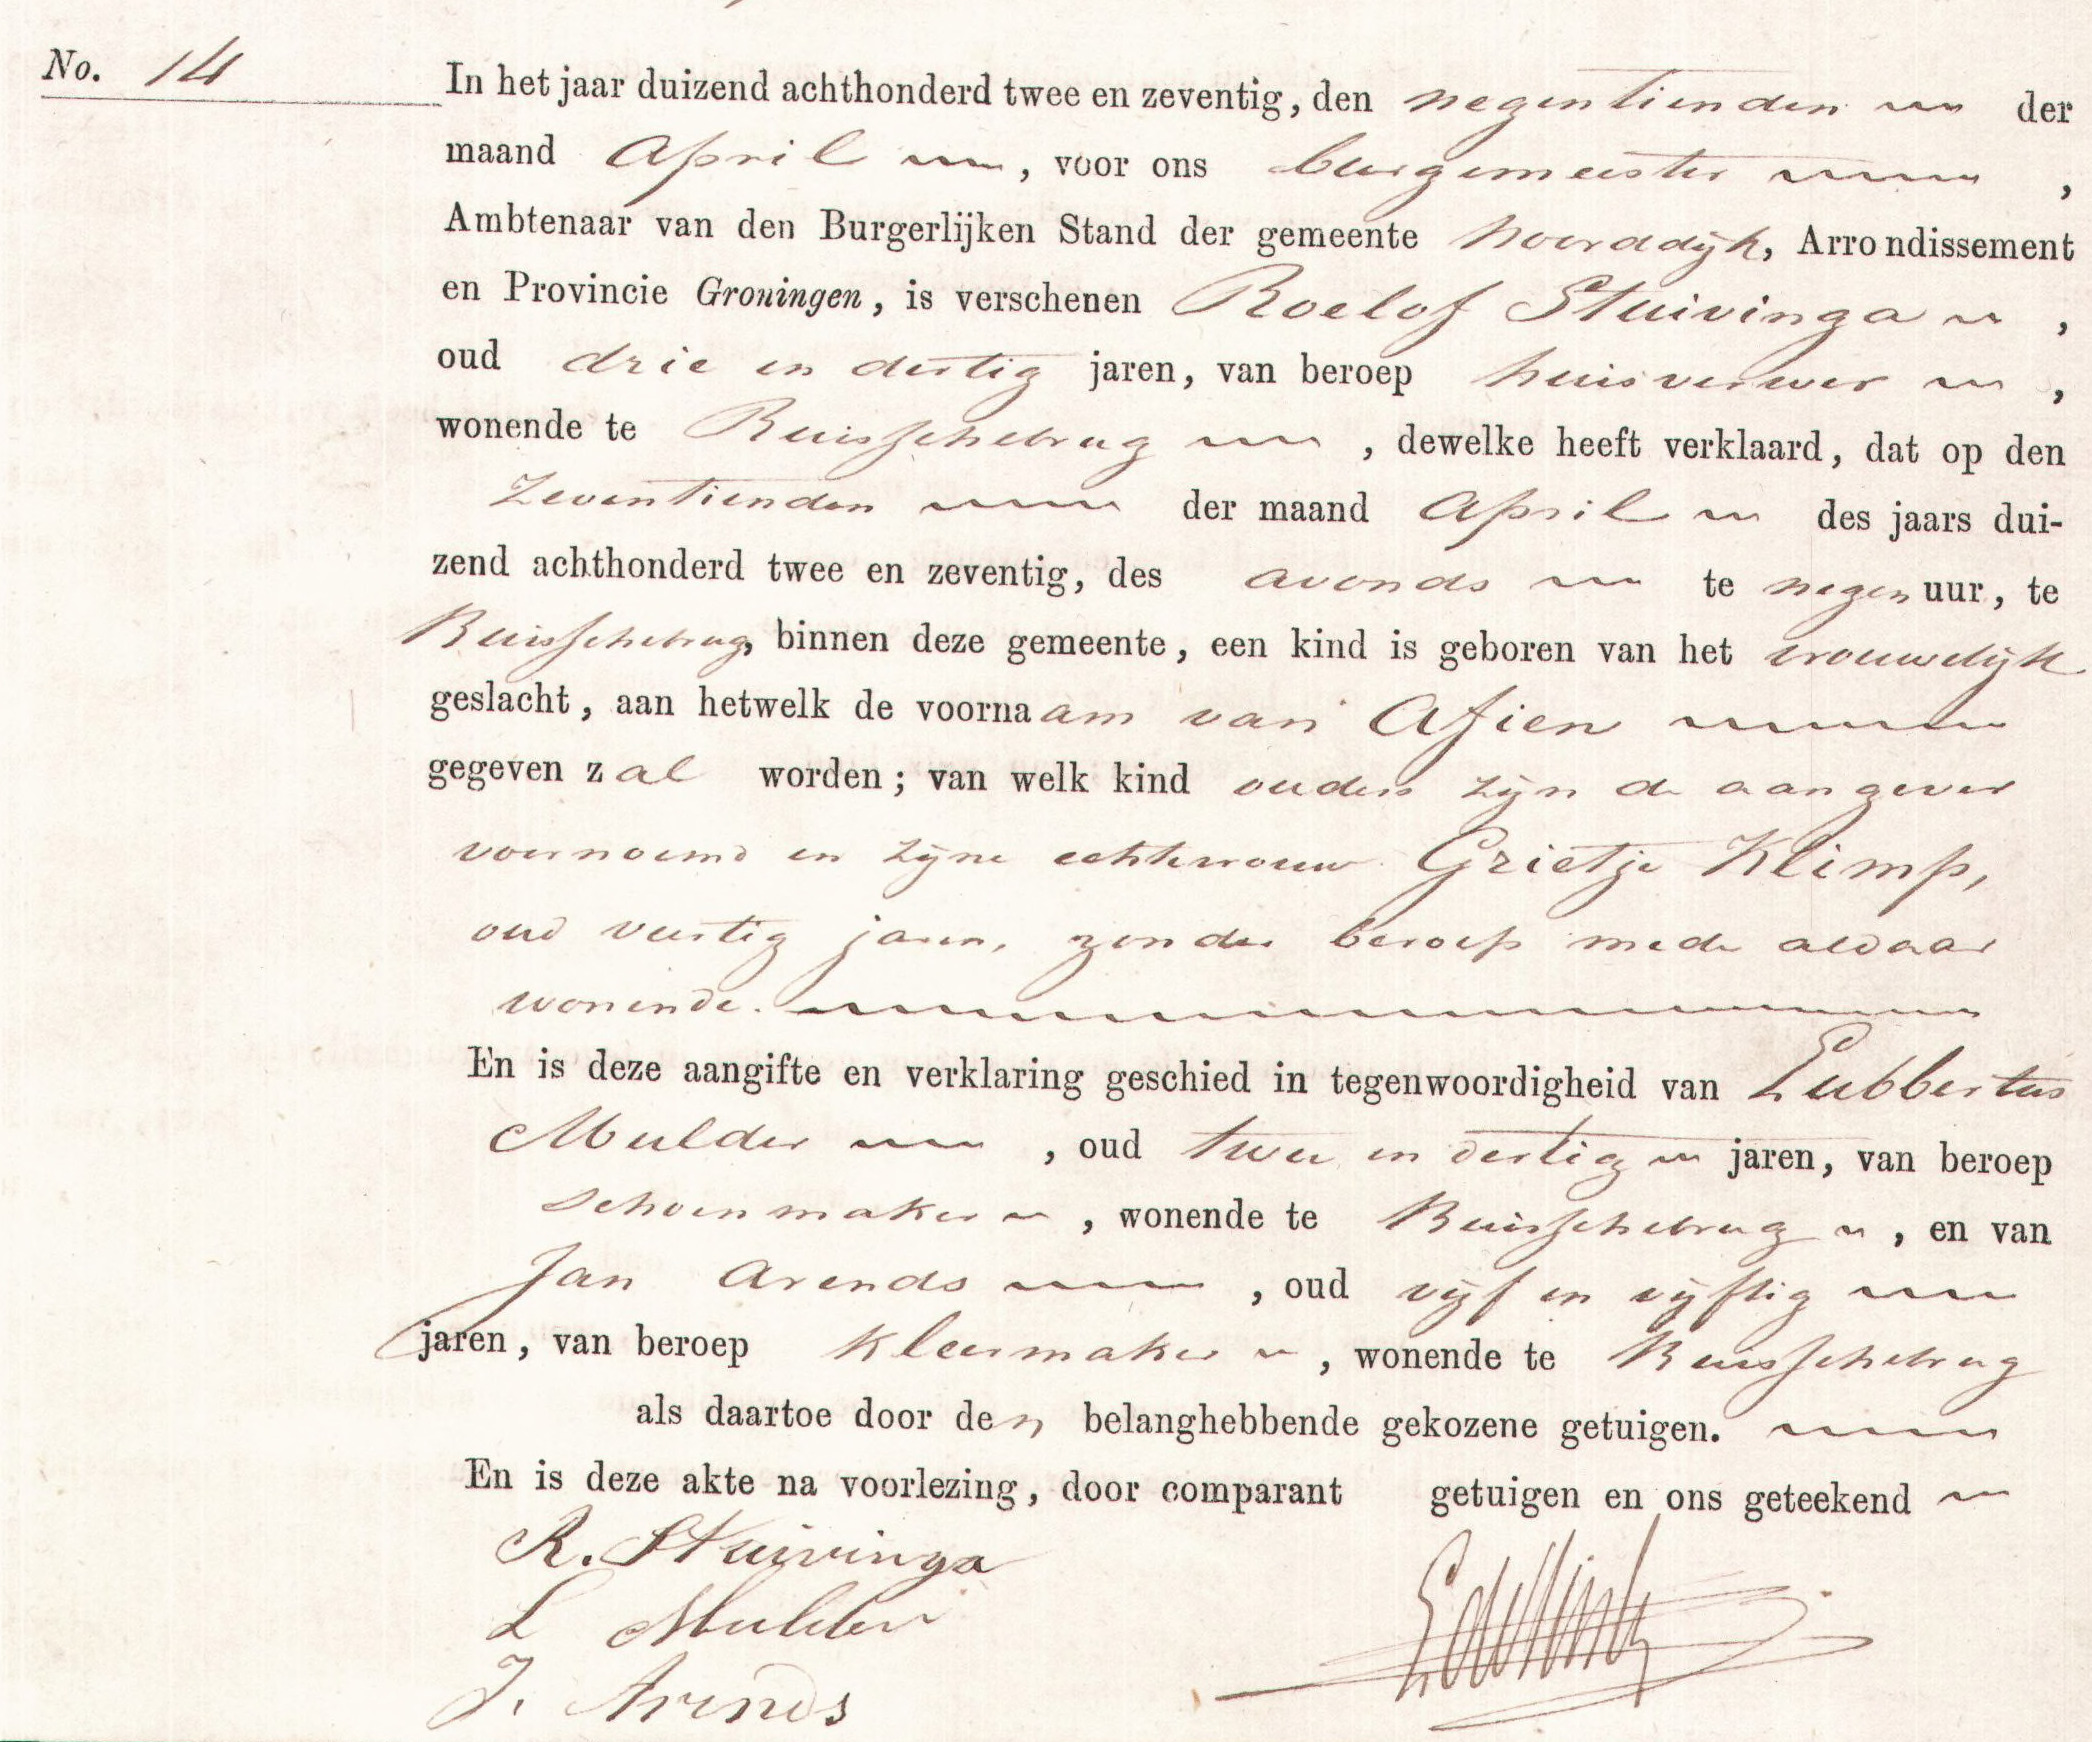 No. 14
In het jaar duizend achthonderd twee en zeventig, den negentienden der
maand April, voor ons burgemeester,
Ambtenaar van den Burgerlijken Stand der gemeente Noorddijk, Arrondissement
en Provincie Groningen, is verschenen Roelof Stuivinga,
oud drie en dertig jaren, van beroep huisverwer,
wonende te Ruisschebrug, dewelke heeft verklaard, dat op den
zeventienden der maand April des jaars dui-
zend achthonderd twee en zeventig, des avonds te negen uur, te
Ruisschebrug, binnen deze gemeente, een kind is geboren van het vrouwelijk
geslacht, aan hetwelk de voornaam van Afien
gegeven zal worden; van welk kind ouders zijn de aangever
voornoemd en zijne echtevrouw Grietje Klimp,
oud veertig jaren, zonder beroep mede aldaar
wonende.
En is deze aangifte en verklaring geschied in tegenwoordigheid van Lubbertus
Mulder, oud twee en dertig jaren, van beroep
schoenmaker, wonende te Ruisschebrug, en van
Jan Arends, oud vijf en vijftig
jaren, van beroep kleermaker, wonende te Ruisschebrug
als daartoe door den belanghebbende gekozene getuigen.
En is deze akte na voorlezing, door comparant getuigen en ons geteekend
R. Stuivinga
L Mulder
J. Arends